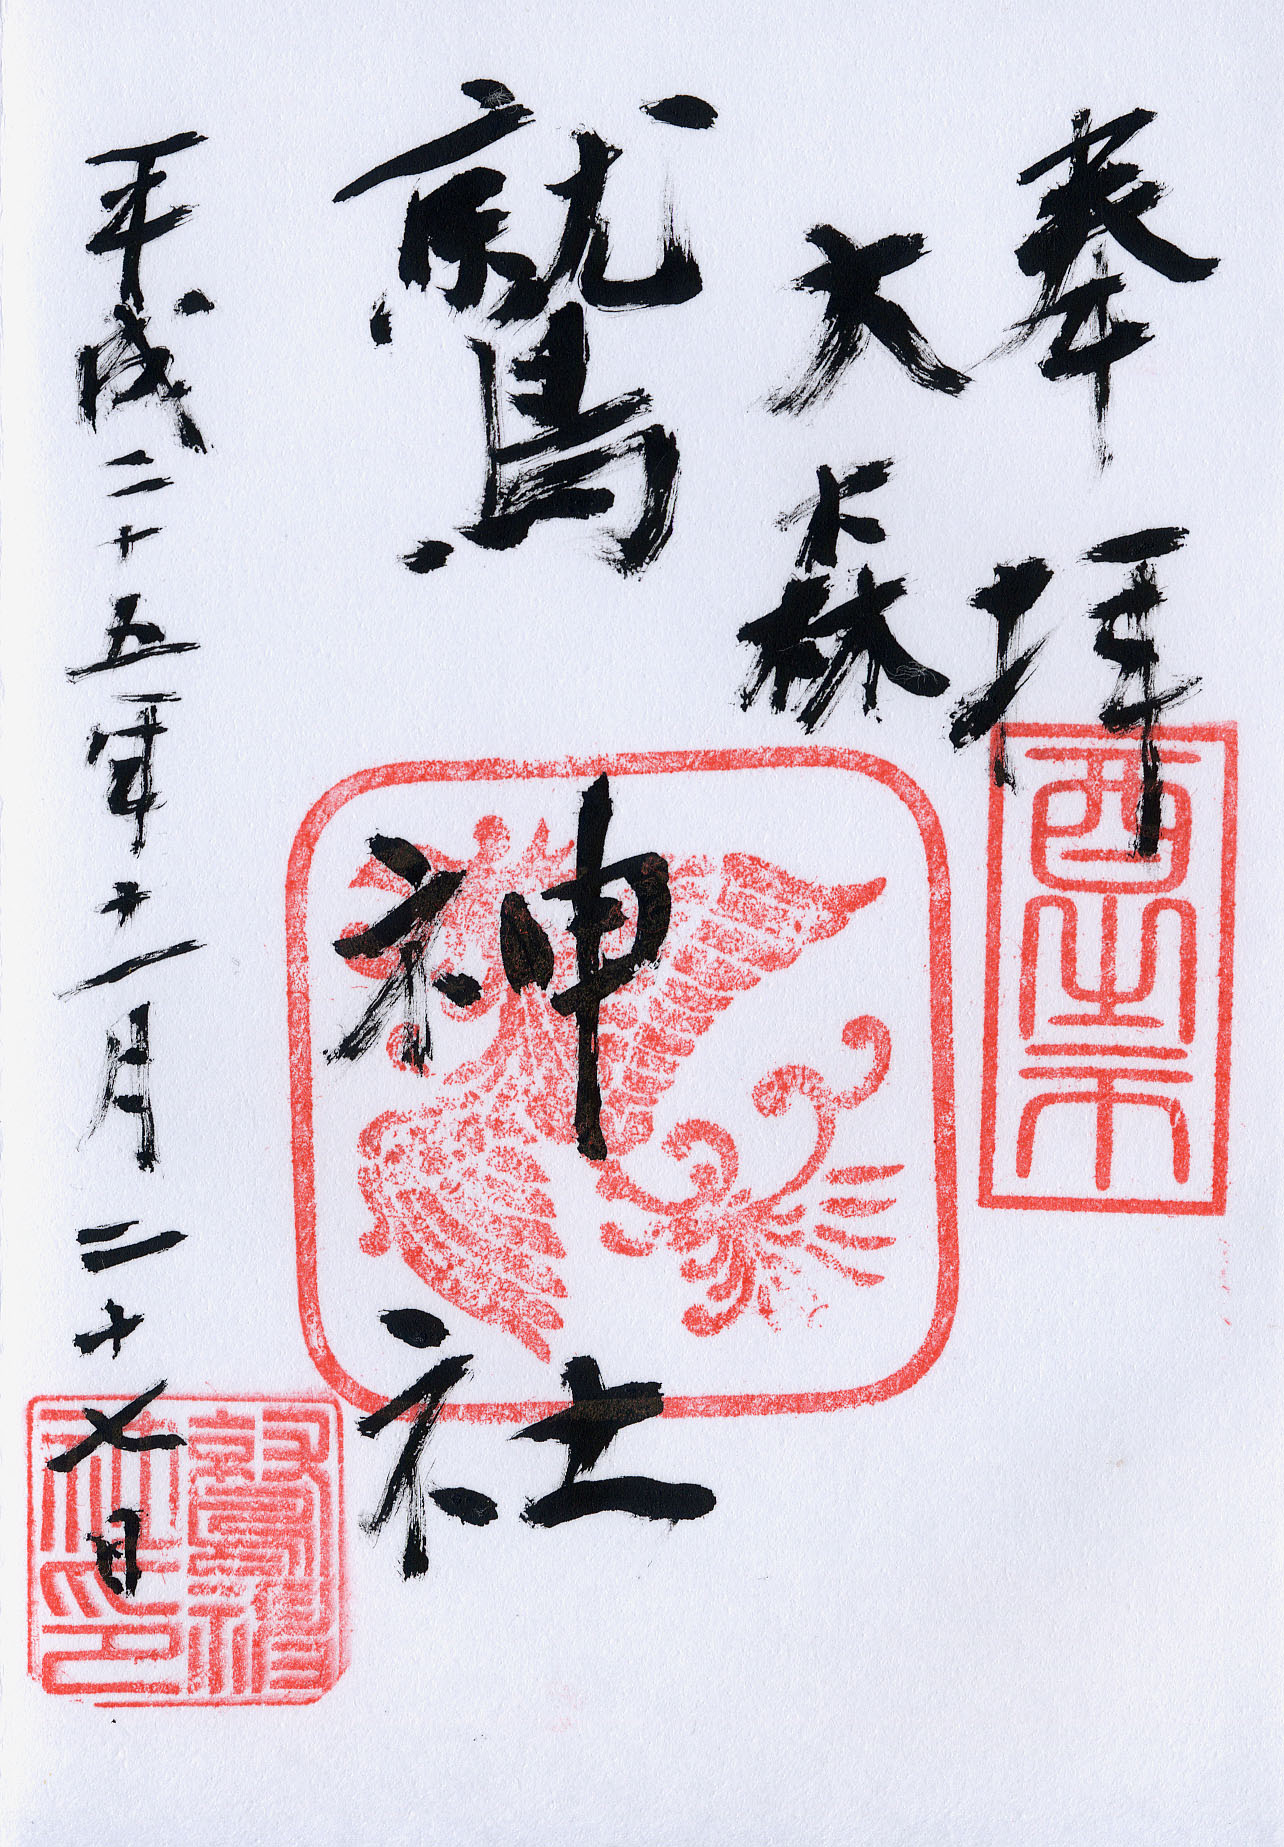 奉拝
酉之市
大森
鷲神社
平成二十五年十一月二十七日
鷲神社印